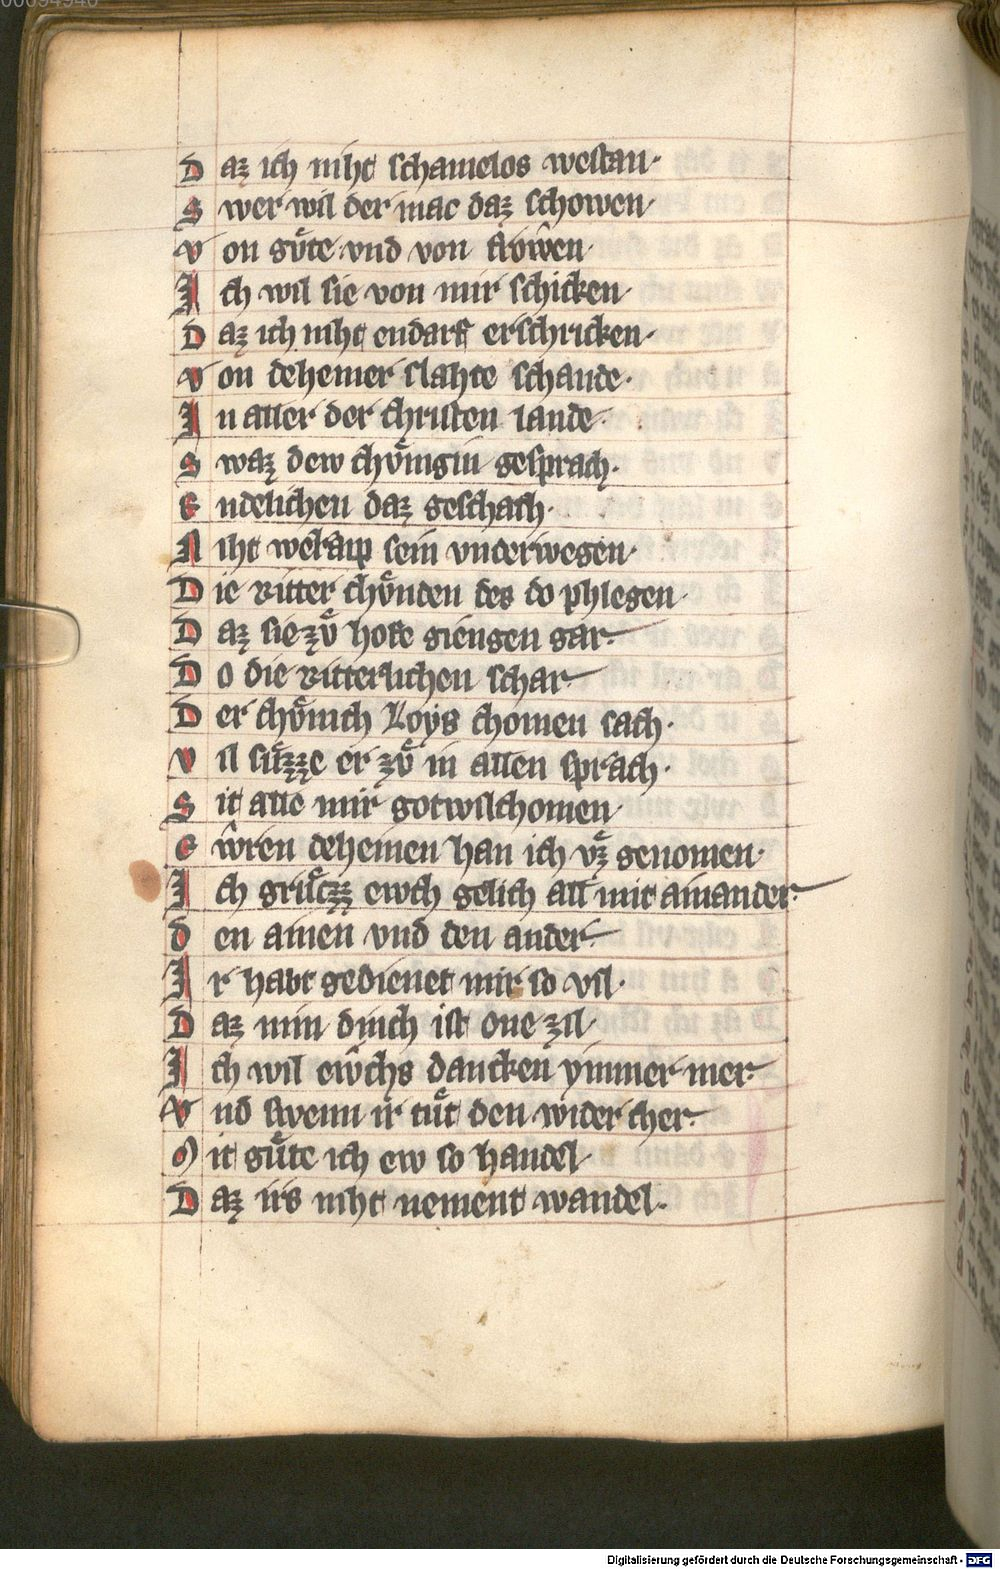 Daz ich niht schamelos westan·
Swer wil der mac daz schowen·
Von guͤte vnd von
Ich wil sie von mir schicken·
Daz ich niht endarf erschricken·
Von deheiner slahte schande·
In aller der christen lande·
Swaz dew chuͦnigin gesprach·
Endelichen daz geschach·
Niht sein vnderwegen·
Die ritter choͤnden des do phlegen·
Daz sie zuͦ hofe giengen gar·
Do die ritterlichen schar
Der choͤnich Loys chomen sach·
Vil suͤzze er zuͦ in allen sprach·
Sit alle mir gotwilchomen·
Ewren deheinen han ich vz genomen·
Ich gruͤezz ewch gelich all mit ainander·
den ainen vnd den ander
Ir habt gedienet mir so vil·
Daz min dinch ist one zil·
Ich wil ewchs dancken ymmer mer
Vnd swenn ir tuͦt den wider cher·
Mit guͤte ich ew so handel·
Daz irs niht nement wandel·
Digitalisierung gefördert durch die Deutsche Forschungsgemeinschaft - DFG